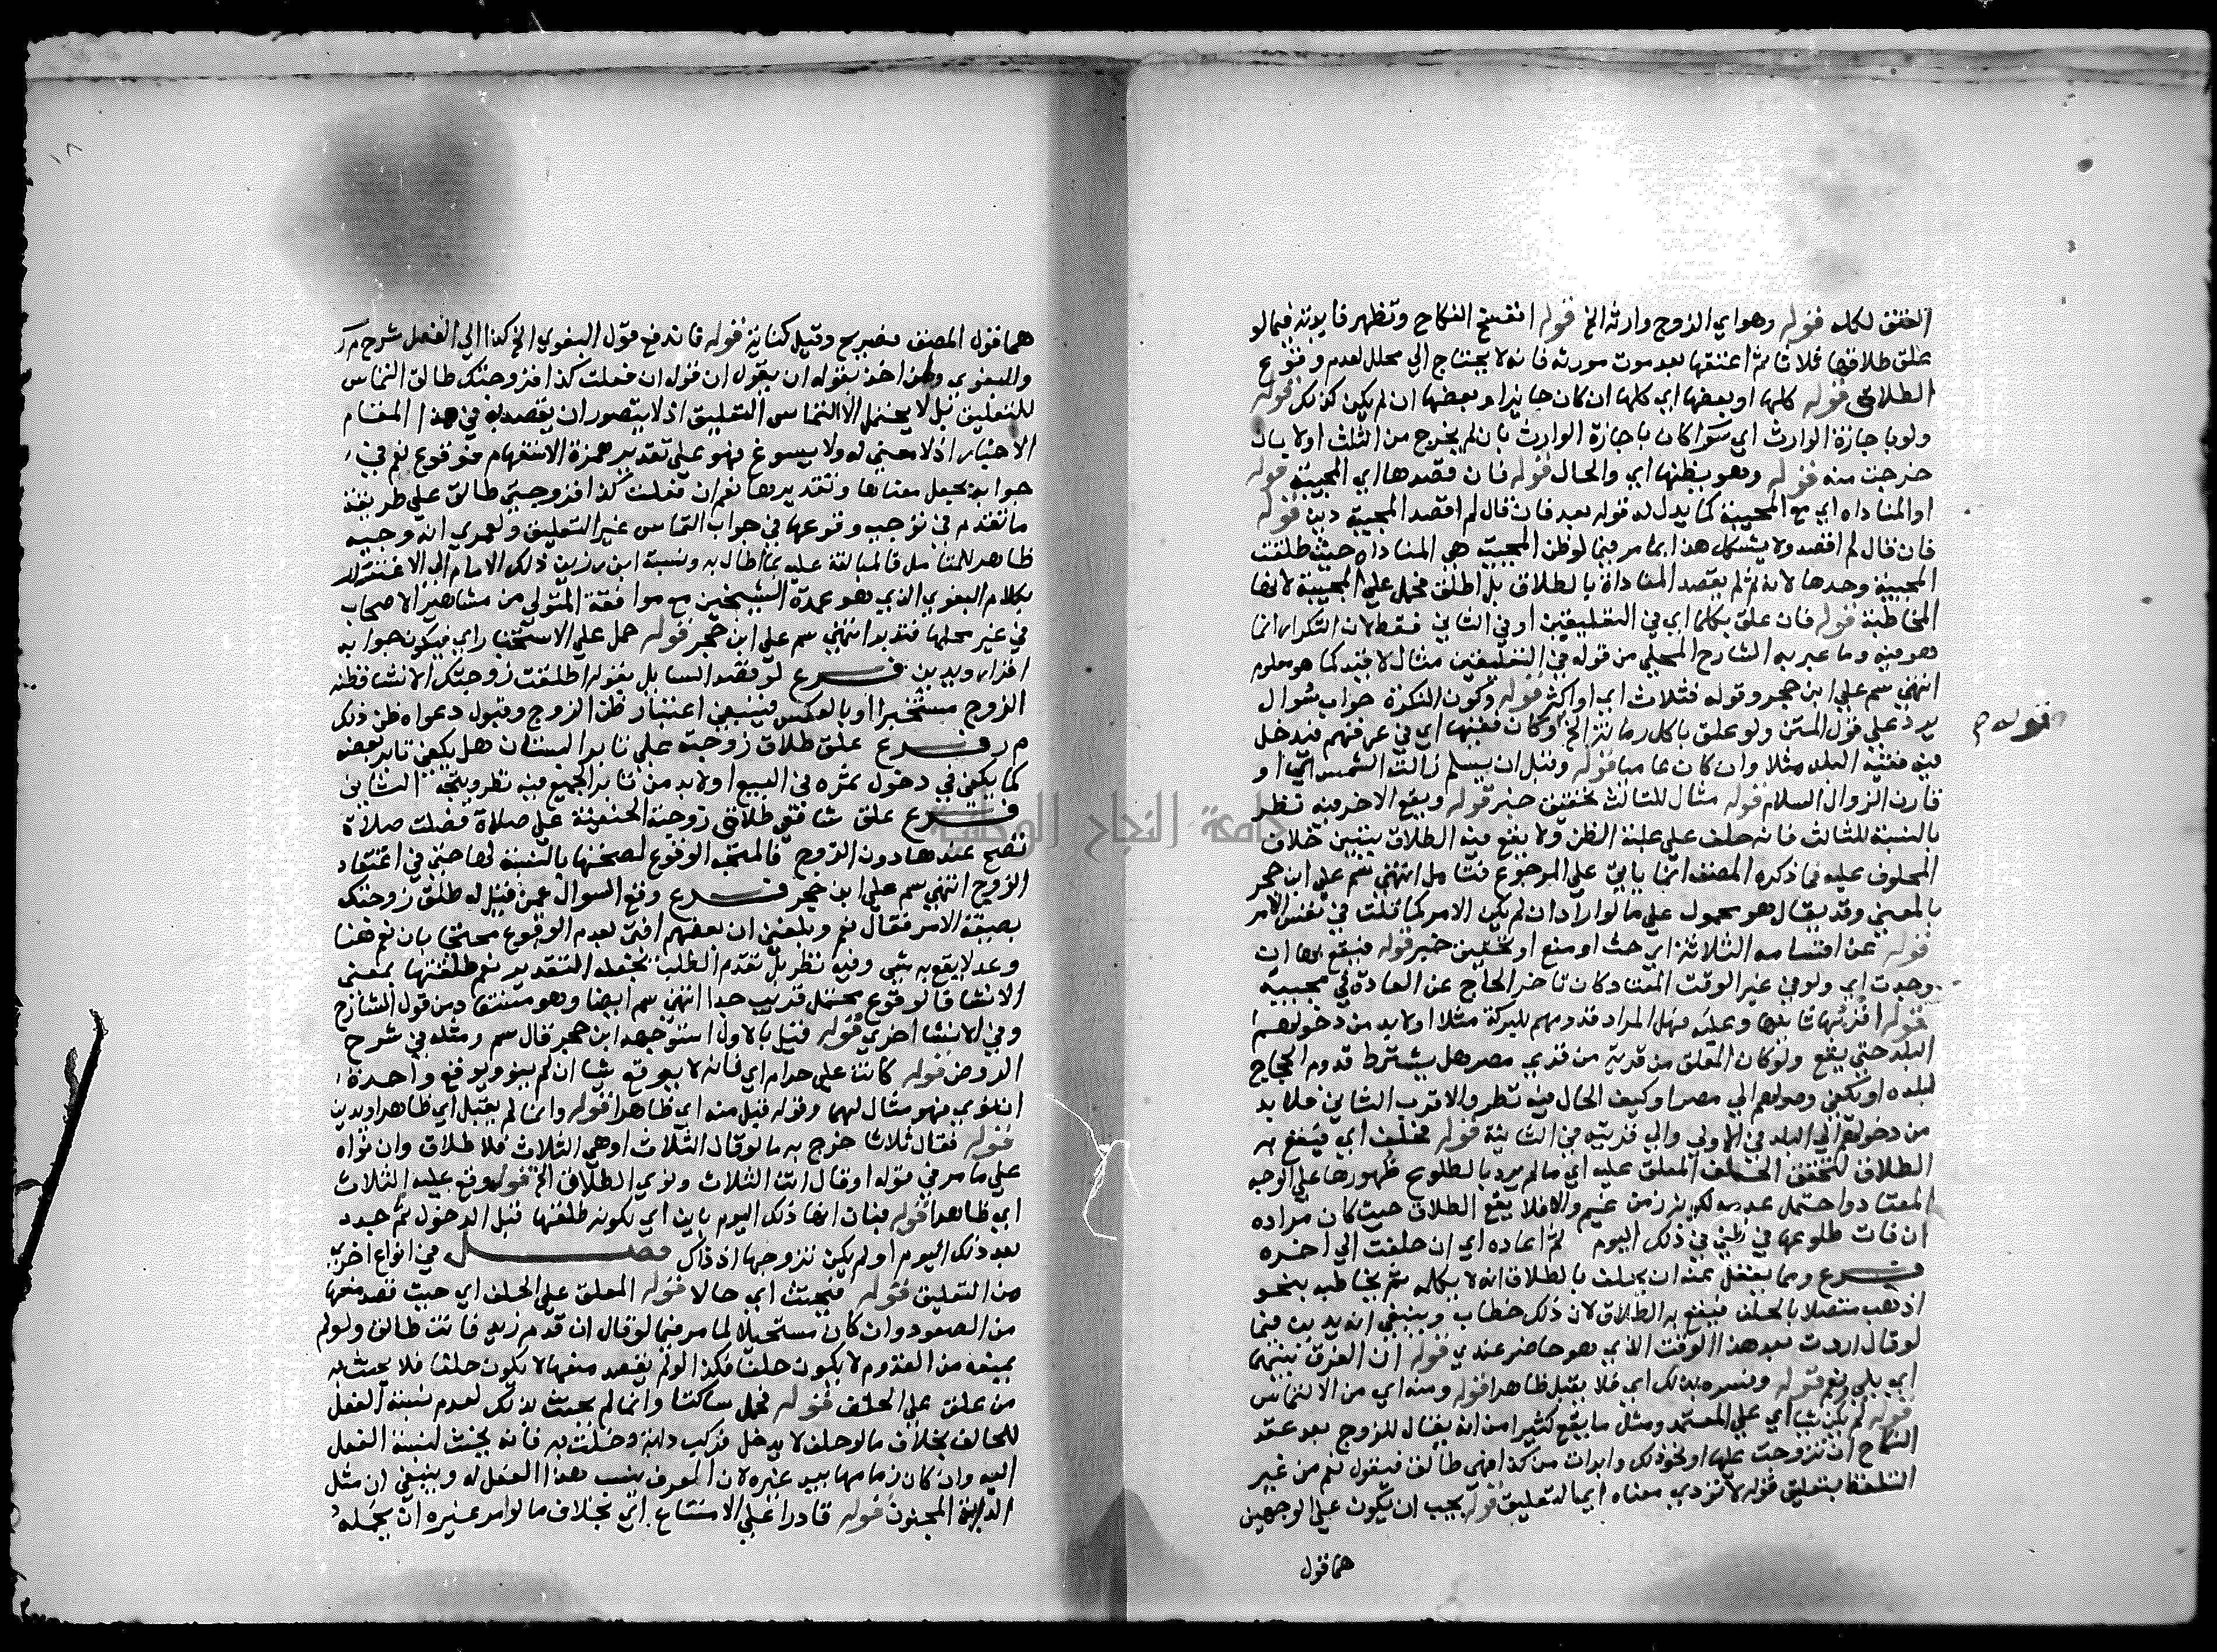 العتق لكله قوله وهو اي الزوج وارثه الخ قوله انفسخ النكاح وتظهر فايدته فيما لو
علق طلاقها ثلاثا ثم اعتقها بعد موت مورثه فانه لا يحتاج الي محلل لعدم وقوع
الطلاق قوله كلها او بعضها اي كلها ان كان حايزا وبعضها ان لم يكن كذلك قوله
ولو باجازة الوارث اي سوا كان باجازة الوارث بان لم يخرج من الثلث اولا بان
خرجت منه قوله وهو يظنها اي والحال قوله فان قصدها اي المجيبة قوله
او المناداه اي مع المجيبة كما يدل له قوله بعد فان قال لم اقصد المجيبة دين قوله
فان قال لم اقصد ولا يشكل هذا بما مر فيما لو ظن المجيبة هي المناداه حيث طلقت
المجيبة وحدها لانه ثم لم يقصد المناداة بالطلاق بل اطلق فحمل علي المجيبة لانها
المخاطبة قوله فان علق بكلما اي في التعليقين او في الثاني فقط لان التكرار انما
هو فيه وما عبر به الشارح المحلي من قوله في التعليقين مثال لا قيد كما هو معلوم
انتهي سم علي ابن حجر وقوله فثلاث اي او اكثر قوله وكون النكرة جواب سوال
يرد علي قول المتن ولو علق باكل رمانة الخ وكان مفتيها اي في عرفهم فيدخل
فيه مفتيه البلد مثلا وان كان عاميا قوله وقبل ان يسلم زالت الشمس اي او
قارن الزوال السلام قوله مثال للثالث تحقيق خبر قوله ويقع الاخر فيه نظر
بالنسبة للثالث فانه حلف علي غلبة الظن ولا يقع فيه الطلاق بتبين خلاف
المحلوف عليه فما ذكره المصنف انما ياتي علي المرجوع فتامل انتهي سم علي ابن حجر
بالمعني وقد يقال هو محمول علي ما لو اراد ان لم يكن الامر كما قلت في نفس الامر
قوله عن اقسامه الثلاثة اي حث او منع او تحقيق خبر قوله فيقع بها ان
وجدت اي ولو في غير الوقت المعتاد كان تاخر الحاج عن العادة في مجييه
البلد حتي يقع ولو كان المعلق من قرية من قري مصر هل يشترط قدوم الحجاج
لبلده او يكفي وصولهم الي مصر او كيف الحال فيه نظر والاقرب الثاني فلا بد
من دخولهم الي البلد في الاولي والي قريته في الثانية قوله فحلف اي فيقع به
الطلاق لتحقق الحلف المعلق عليه اي ما لم يرد بالطلوع ظهورها علي الوجه
ان فات طلوعها في ظني في ذلك اليوم ثم اعاده اي ان حلفت الي اخره
فرع ومما يغفل عنه ان يحلف بالطلاق انه لا يكلمه ثم يخاطبه بنحو
اذهب متصلا بالحلف فيقع به الطلاق لان ذلك خطاب وينبغي انه يدين فيما
لو قال اردت بعد هذا الوقت الذي هو حاضر عندي قوله ان الفرق بينهما
اي بلي ونعم قوله وفسره بذلك اي فلا يقبل ظاهرا قوله ومنه اي من الالتماس
قوله لم يكن شيا اي علي المعتمد ومثل ما يقع كثيرا من انه يقال للزوج بعد عقد
النكاح ان تزوجت عليها او نحو ذلك وابرات من كذا فهي طالق فيقول نعم من غير
التلفظ بتعليق قوله لا تودي معناه اي التعليق قوله يجب ان يكون علي الوجهين
هما قول
قوله م
هما فقول المصنف فصريح وقيل كناية فقوله فاندفع قول البغوي الخ كذا الي الفصل شرح م ر
وللبغوي ولمن اخذ بقوله ان يقول ان قوله ان فعلت كذا فزوجتك طالق التماس
للتعليق بل لا يحتمل الا التماس التعليق اذ لا يتصور ان يقصد به في هذا المقام
الاخبار اذ لا معني له ولا يسوغ فهو علي تقدير همزة الاستفهام فوقوع نعم في
جوابه يجعل معناها وتقديرها نعم ان فعلت كذا فزوجتي طالق علي طريقة
ما تقدم في توجيه وقوعها في جواب التماس غير التعليق ولعمري انه وجيه
ظاهر للمتامل فالمبالغة عليه بما اطال به ونسبة ابن رزين ذلك الامام الي الاغترار
بكلام البغوي الذي هو عمدة الشيخين مع موافقة المتولي من مشاهير الاصحاب
في غير محلها فتدبر انتهي سم علي ابن حجر قوله حمل علي الاستخبار اي فيكون جوابه
اقرار ويدين فرع لو قصد السايل بقوله اطلقت زوجتك الانشا فظنه
الزوج مستخبرا او بالعكس فينبغي اعتبار ظن الزوج وقبول دعواه ظن ذلك
م ر فرع علق طلاق زوجته علي تابير البستان هل يكفي تابير بعضه
كما يكفي في دخول ثمره في البيع او لا بد من تابير الجميع فيه نظر ويتجه الثاني
فرع علق شافعي طلاق زوجته الحنفية علي صلاة فصلت صلاة
تصح عندها دون الزوج فالمتجه الوقوع لصحتها بالنسبة لها حتي في اعتقاد
الزوج انتهي سم علي ابن حجر فرع وقع السوال عمن قيل له طلق زوجتك
بصيغة الامر فقال نعم وبلغني ان بعضهم افتي بعدم الوقوع محتجا بان نعم هنا
وعد لا يقع به شي وفيه نظر بل تقدم الطلب يجعله التقدير نعم طلقتها بمعني
الانشا فالوقوع محتمل قريب جدا انتهي سم ايضا وهو مستفاد من قول الشارح
وفي الانشا اخري قوله قيل بالاول استوجهه ابن حجر قال سم ومثله في شرح
الروض قوله كانت علي حرام اي فانه لا يوقع شيا ان لم ينو ويوقع واحدة
ان نوي فهو مثال لهما وقوله قبل منه اي ظاهرا قوله وانما لم يقبل اي ظاهرا ويدين
قوله فقال ثلاثا خرج به ما لو قال الثلاث او هي الثلاث فلا طلاق وان نواه
علي ما مر في قوله او قال انت الثلاث ونوي الطلاق الخ قوله وقع عليه الثلاث
اي ظاهرا قوله فبان انها ذلك اليوم باين اي بكونه طلقها قبل الدخول ثم جدد
بعد ذلك اليوم او لم يكن تزوجها اذ ذاك فصل في انواع اخري
من التعليق قوله فيحنث اي حالا قوله المعلق علي الحلف اي حيث قصد منعها
من الصعود وان كان مستحيلا لما مر فيما لو قال ان قدم زيد فانت طالق ولو لم
يمنعه من القدوم لا يكون حلفا فكذا لو لم يقصد منعها لا يكون حلفا فلا يحنث به
من علق علي الحلف قوله فحمل ساكتا وانما لم يحنث بذلك لعدم نسبة الفعل
للحالف بخلاف ما لو حلف لا يدخل فركب دابة ودخلت به فانه يحنث لنسبة الفعل
اليه وان كان زمامها بيد غيره لان العرف ينسب هذا الفعل له وينبغي ان مثل
الدابة المجنون قوله قادرا علي الامتناع اي بخلاف ما لو امر غيره ان يحمله